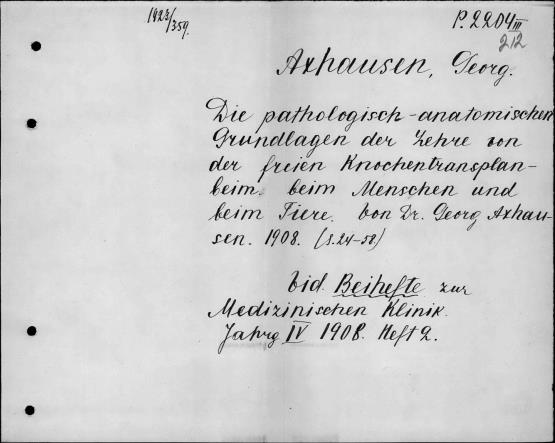 1923/359.
P. 2204 III
212
Axhausen, Georg.
Die pathologisch-anatomischen
Grundlagen der Lehre von
der freien Knochentransplan-
beim. beim Menschen und
beim Tiere. Von Dr. Georg Axhau-
sen. 1908. (S. 24-58)
Vid. Beihefte zur
Medizinischen Klinik.
Jahrg IV 1908. Heft 2.